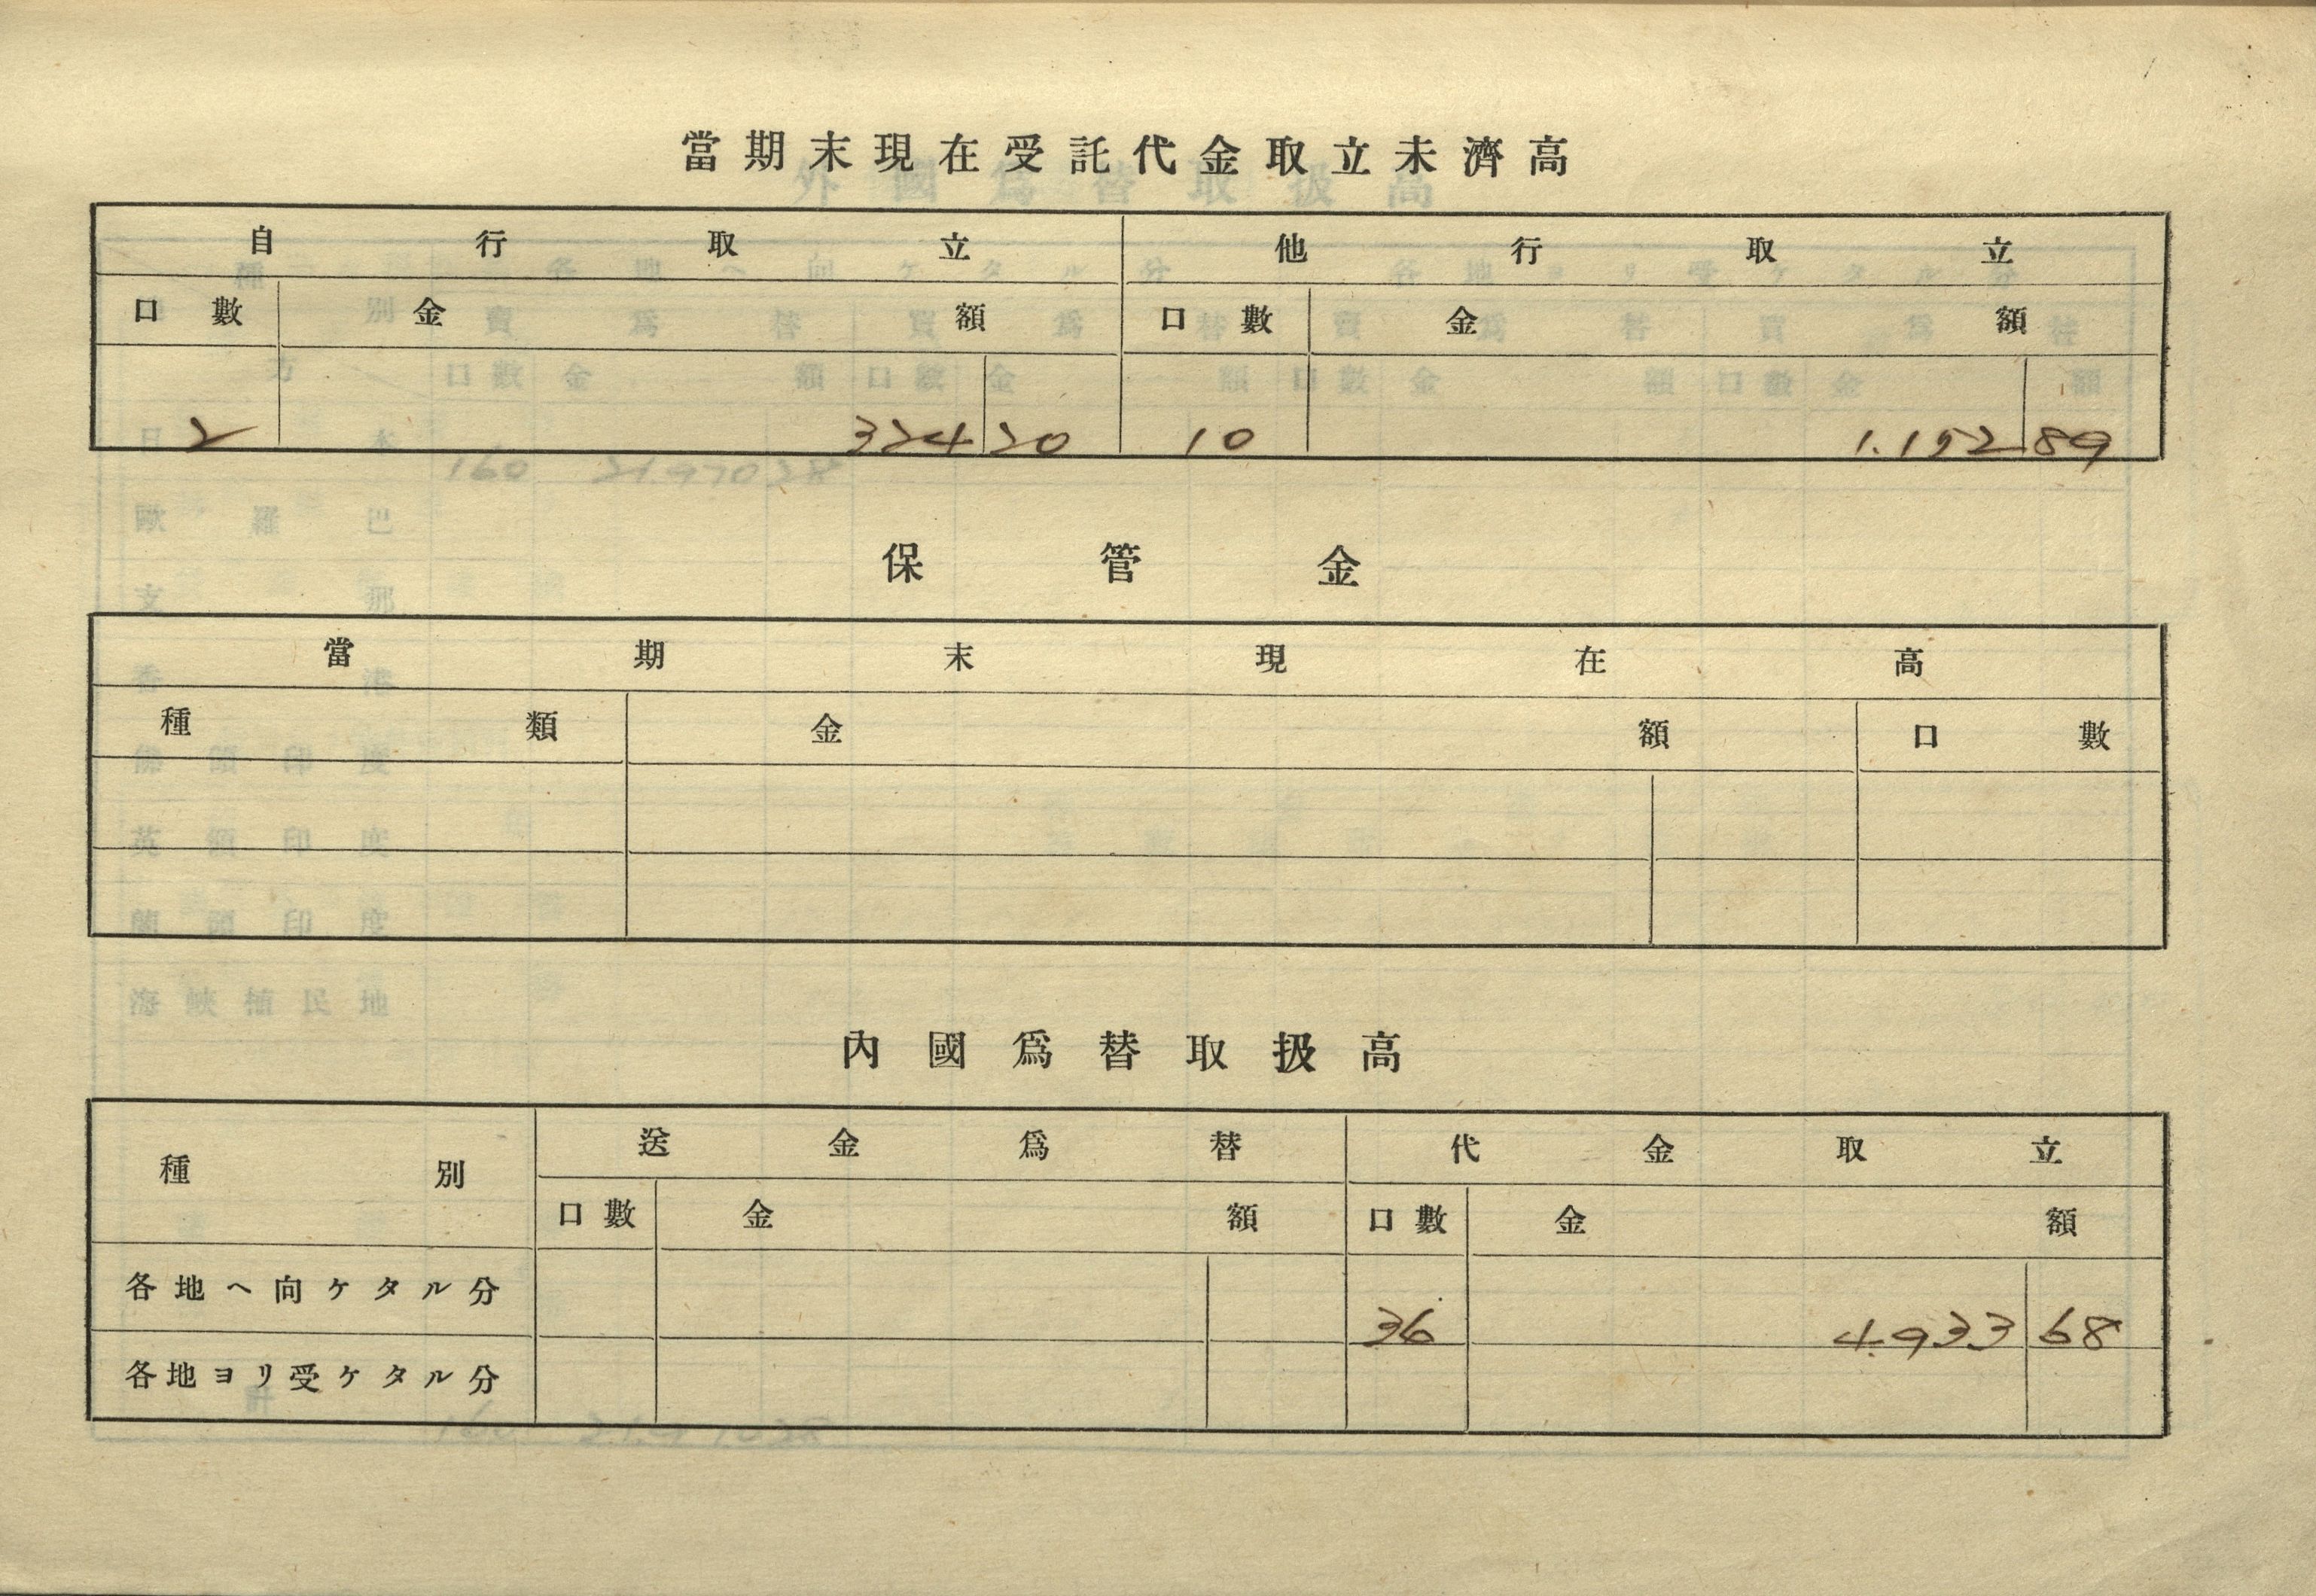 當期末現在受託代金取立未濟高
自行取立 他行取立
口數 金額 口數 金額
2 324 20 10 1.152 89
保管金
當期末現在高
種類 金額 口數
內國爲替取扱高
種別 送金爲替 代金取立
口數 金額 口數 金額
各地ヘ向ケタル分 36 4.933 68
各地ヨリ受ケタル分